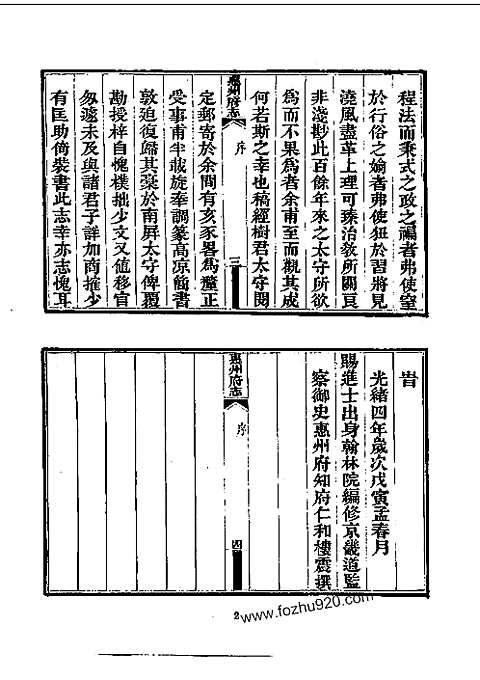 程法而秉式之政之禍者弗使窒
於行俗之媮者弗使狃於習將見
澆風盡革上理可臻治敎所關頁
非淺尠此百餘年來之太守所欲
為而不果為者余甫至而觀其成
何若斯之幸也稿經樹君太守閱
定郵寄於余間有亥豕畧為釐正
受事甫半載旋奉調篆高凉簡書
敦迫復歸其藁於南屏太守俾覆
勘授梓自愧樸拙少文又値移官
匆遽未及與諸君子詳加商搉少
有匡助倚裝書此志幸亦志愧耳
惠州府志
序
三
旹
光緒四年歲次戊寅孟春月
賜進士出身翰林院編修京畿道監
察御史惠州府知府仁和樓震撰
惠州府志
序
四
2
www.fozhu920.com